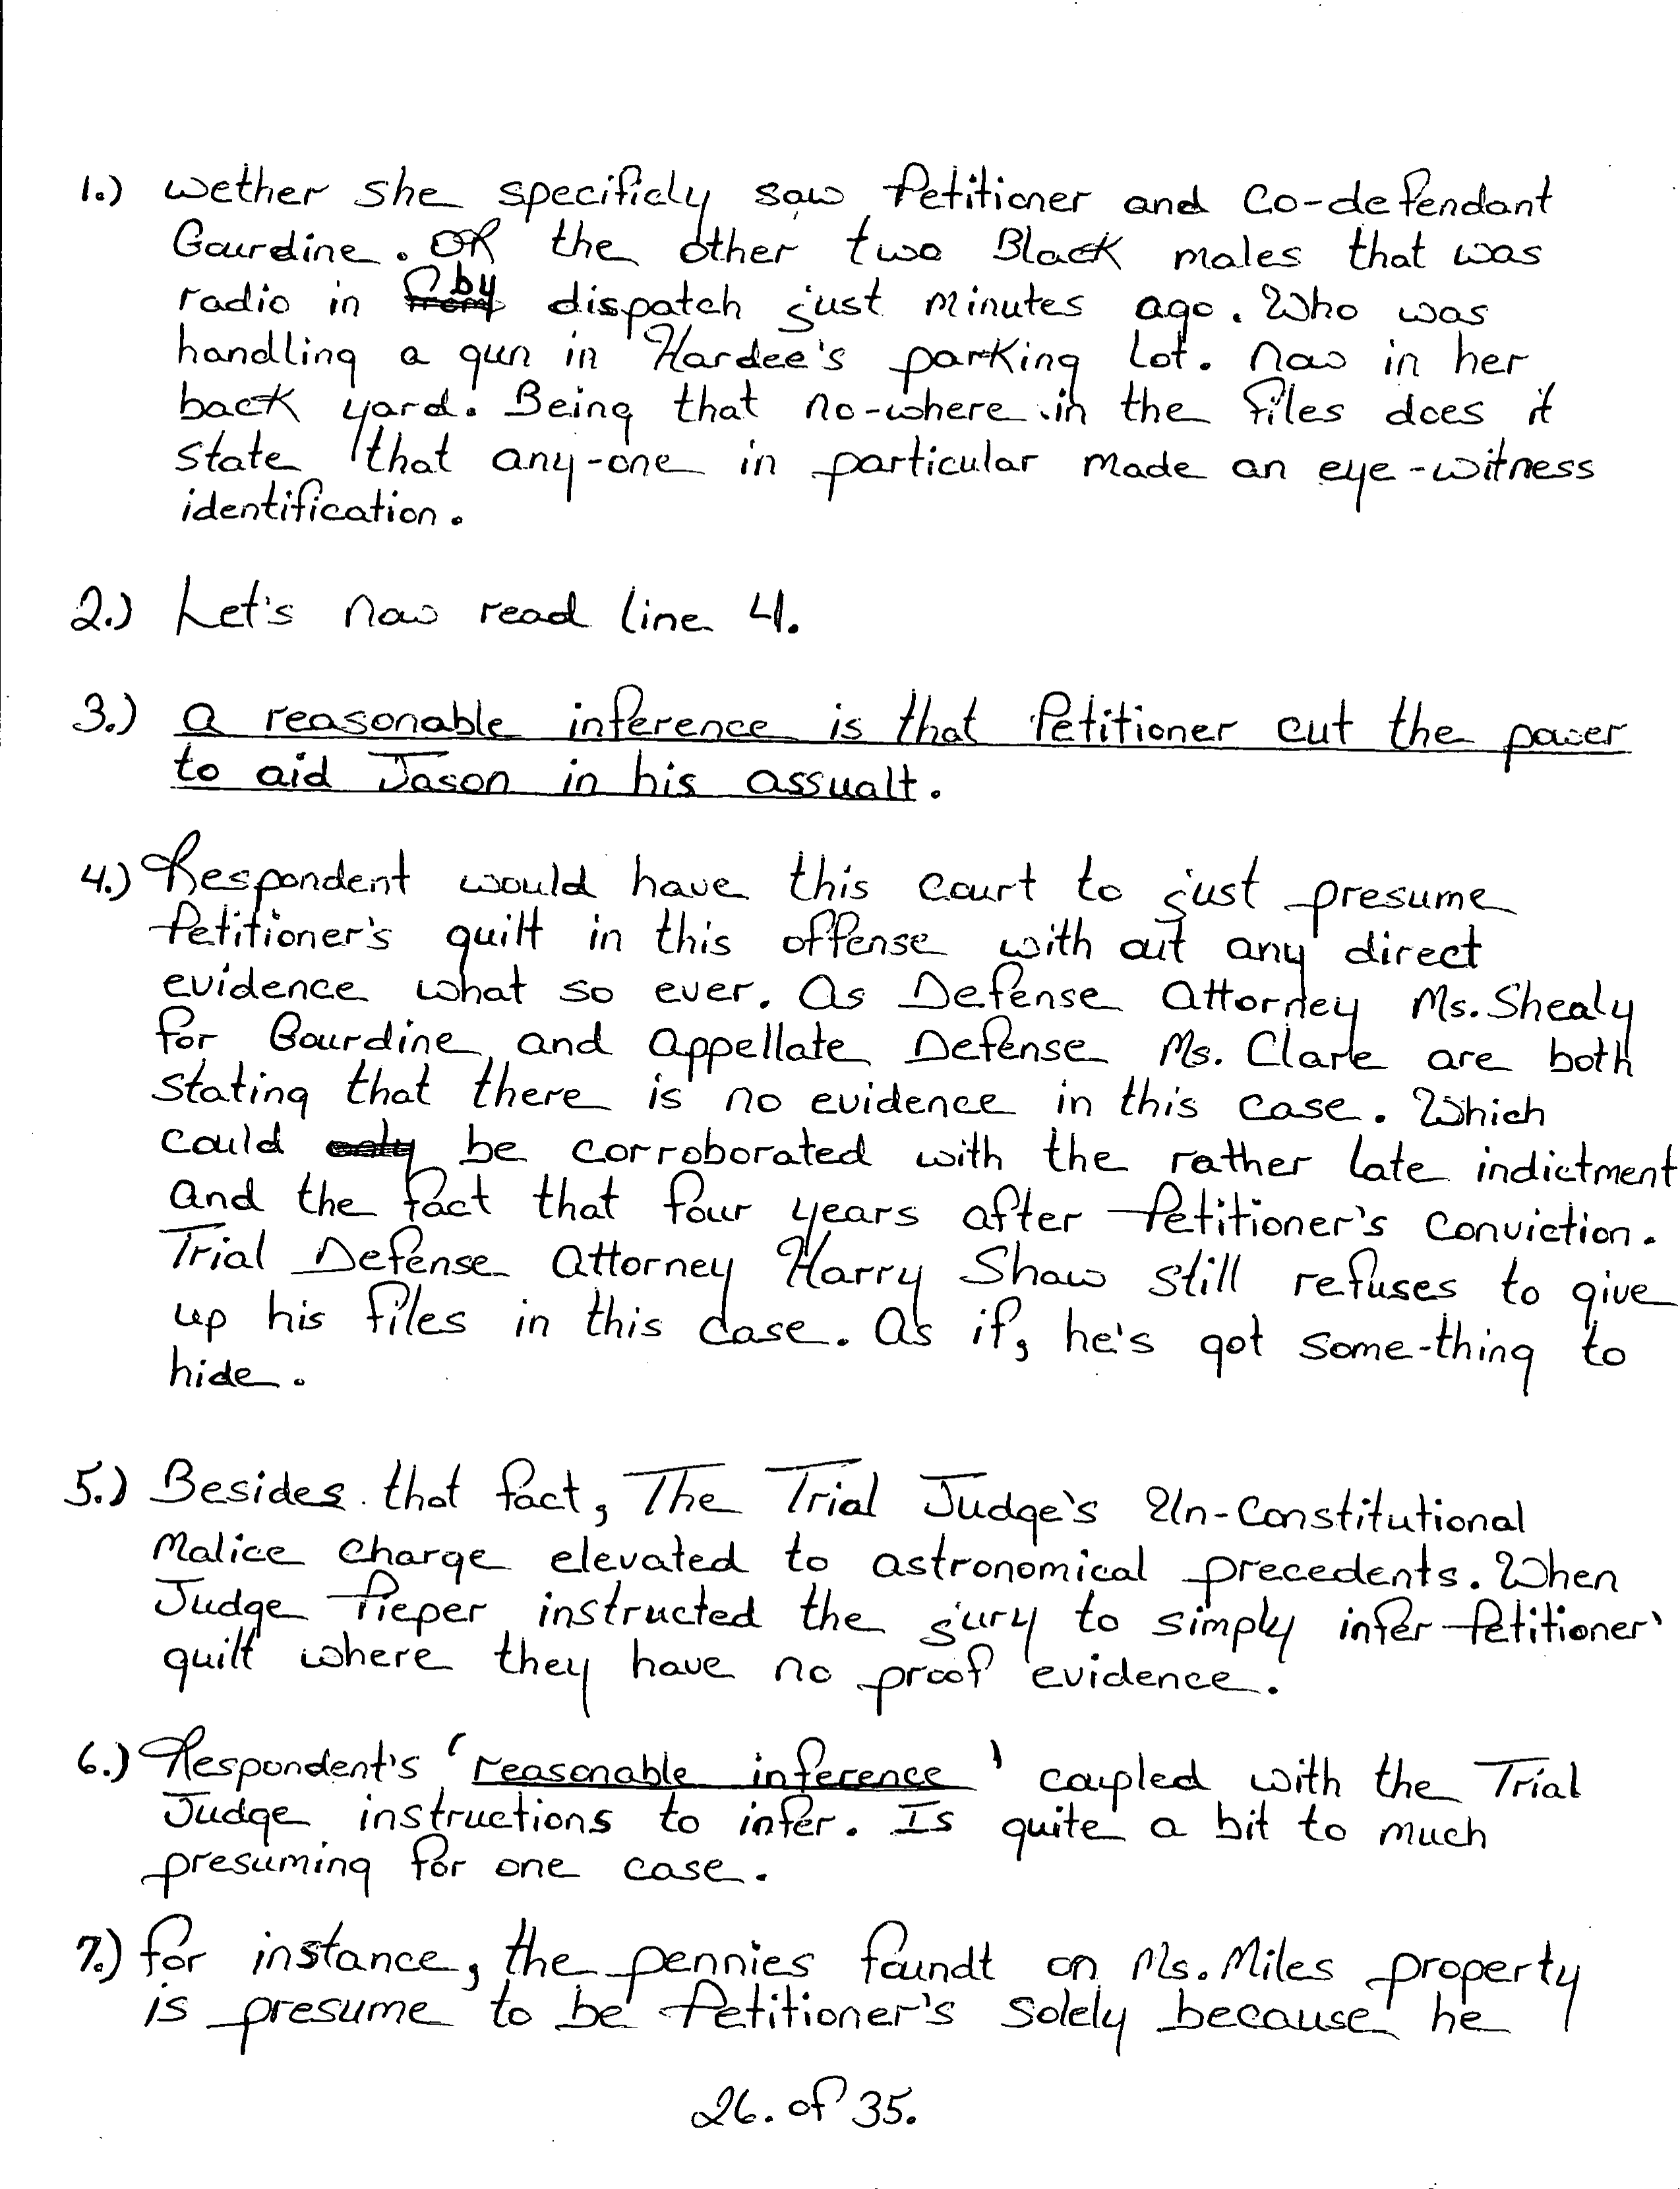 1.) wether she specificly saw Petitioner and Co-defendant
Gourdine. OR the other two Black males that was
radio in by dispatch just minutes ago. Who was
handling a gun in Hardee's parking Lot. Now in her
back yard. Being that no-where in the files does it
state that any-one in particular made an eye-witness
identification.
2.) Let's now read line 4.
3.) a reasonable inference is that Petitioner cut the power
to aid Jason in his assualt.
4.) Respondent would have this court to just presume
Petitioner's guilt in this offense with out any direct
evidence what so ever. As Defense Attorney Ms. Shealy
for Gourdine and Appellate Defense Ms. Clare are both
stating that there is no evidence in this case. Which
could be corroborated with the rather late indictment
and the fact that four years after Petitioner's conviction.
Trial Defense Attorney Harry Shaw still refuses to give
up his files in this case. As if, he's got some-thing to
hide.
5.) Besides that fact, The Trial Judge's Un-Constitutional
Malice charge elevated to astronomical precedents. When
Judge Pieper instructed the jury to simply infer Petitioner'
guilt where they have no proof evidence.
6.) Respondent's 'reasonable inference' coupled with the Trial
Judge instructions to infer. Is quite a bit to much
presuming for one case.
7.) for instance, the pennies foundt on Ms. Miles property
is presume to be Petitioner's solely because he
26. of 35.